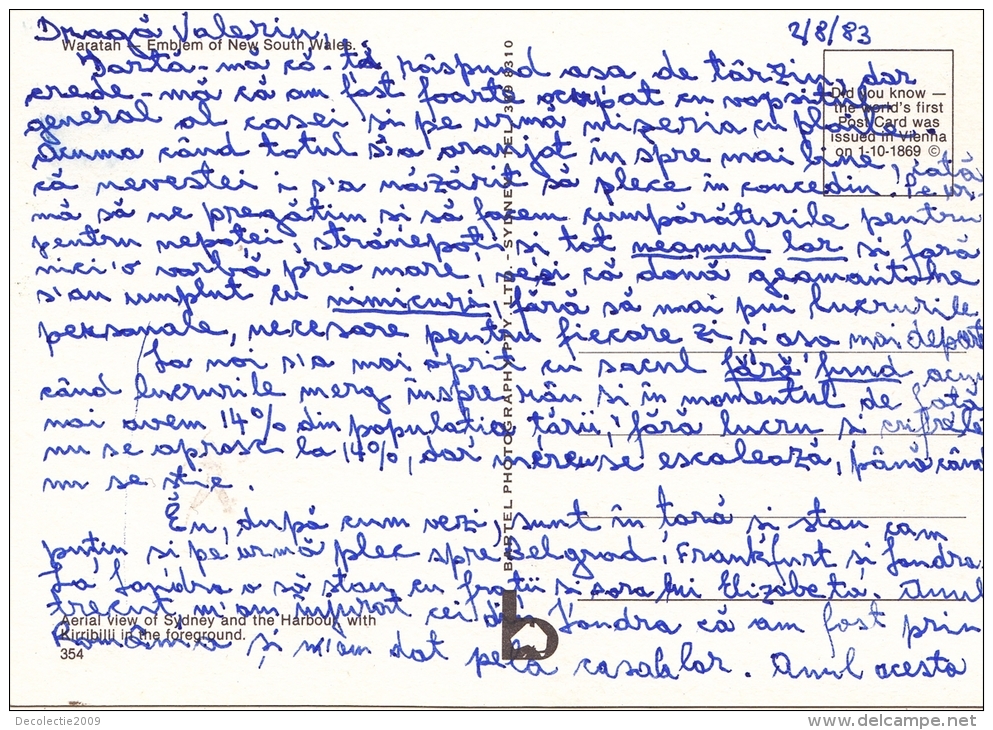 Dragă Valeriu, 2/8/83
Waratah — Emblem of New South Wales.
Iartă-mă că-ți răspund asa de târziu, dar
crede-mă că am fost foarte ocupat cu vopsitul
general al casei si pe urmă mizeria cu ploile.
Acuma când totul s'a aranjat în spre mai bine, iată
că nevestei i s'a năzărit să plece în concediu. Pe ur-
mă să ne pregătim si să facem cumpărăturile pentru
pentru nepoței, strănepoți si tot neamul lor si fară
nici'o vorbă prea mare, vezi că două geamantane
s'au umplut cu nimicuri, fără să mai pui lucrurile
personale, necesare pentru fiecare zi si asa mai departe
La noi s'a mai oprit cu sacul fără fund acum
când lucrurile merg înspre rău si în momentul de fată
noi avem 14% din populatia tării, fără lucru si cifrele
nu se opresc la 14%, dar mereu se escalează, până când
nu se stie.
Eu, după cum vezi, sunt în tară si stau cam
puțin si pe urmă plec spre Belgrad, Frankfurt si Londra.
La Londra o să stau cu frații si sora lui Elizabeta. Anul
trecut m'am injurat cei din Londra că am fost prin
România și n'am dat pela casa lor. Anul acesta
Did you know —
the world's first
Post Card was
issued in Vienna
on 1-10-1869 ©
BARTEL PHOTOGRAPHY PTY. LTD. - SYDNEY TEL.
Aerial view of Sydney and the Harbour with
Kirribilli in the foreground.
354
b
Decolectie2009
www.delcampe.net